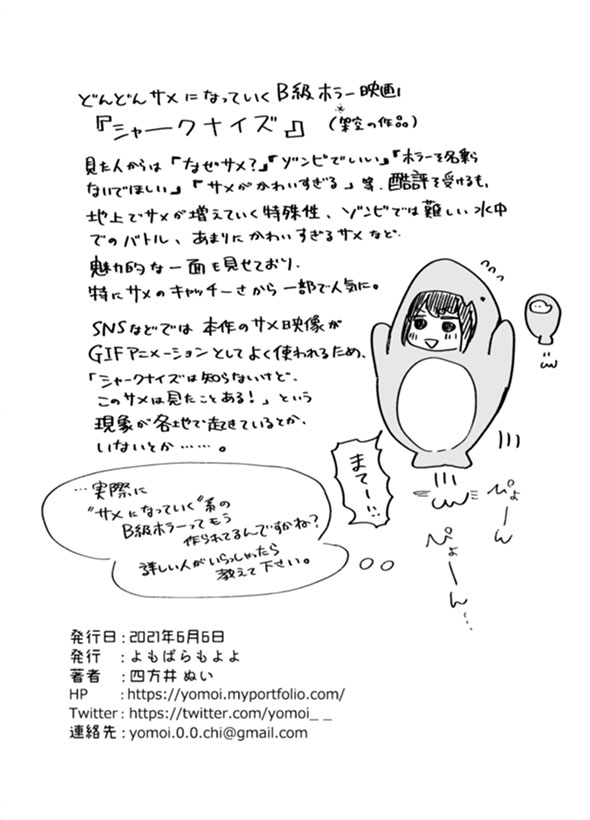 どんどんサメになっていくB級ホラー映画
『シャークナイズ』 *(架空の作品)
見た人からは「なぜサメ?」「ゾンビでいい」「ホラーを名乗ら
ないでほしい」「サメがかわいすぎる」等、酷評を受けるも、
地上でサメが増えていく特殊性、ゾンビでは難しい水中
でのバトル、あまりにかわいすぎるサメなど、
魅力的な一面も見せており、
特にサメのキャッチーさから一部で人気に。
SNSなどでは本作のサメ映像が
GIFアニメーションとしてよく使われるため、
「シャークナイズは知らないけど、
このサメは見たことある!」という
現象が各地で起きているとか、
いないとか……。
まてー!!
ぴょーん
ぴょーん…
…実際に
"サメになっていく"系の
B級ホラーってもう
作られてるんですかね?
詳しい人がいらっしゃったら
教えて下さい。
発行日:2021年6月6日
発行 :よもぱらもよよ
著者 :四方井 ぬい
HP :https://yomoi.myportfolio.com/
Twitter:https://twitter.com/yomoi_ _
連絡先:yomoi.0.0.chi@gmail.com